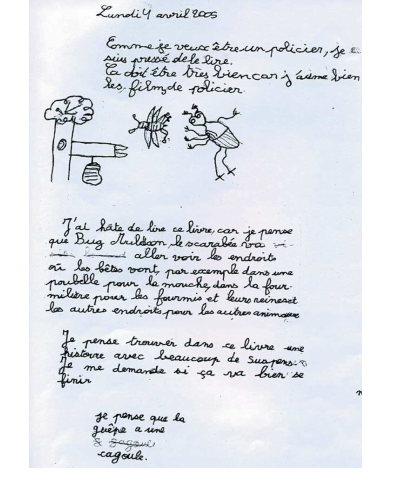 Lundi 4 avril 2005
Comme je veux être un policier, je
suis pressé de le lire.
Ça doit être très bien car j'aime bien
les film de policier
J'ai hâte de lire ce livre, car je pense
que Bug Muldoon, le scarabée va
aller voir les endroits
où les bêtes vont, par exemple dans une
poubelle pour la mouche, dans la four
milière pour les fourmis et leurs reines et
les autres endroits pour les autres animaux
Je pense trouver dans ce livre une
histoire avec beaucoup de Suspens.
Je me demande si ça va bien se
finir
je pense que la
guêpe a une
cagoule.